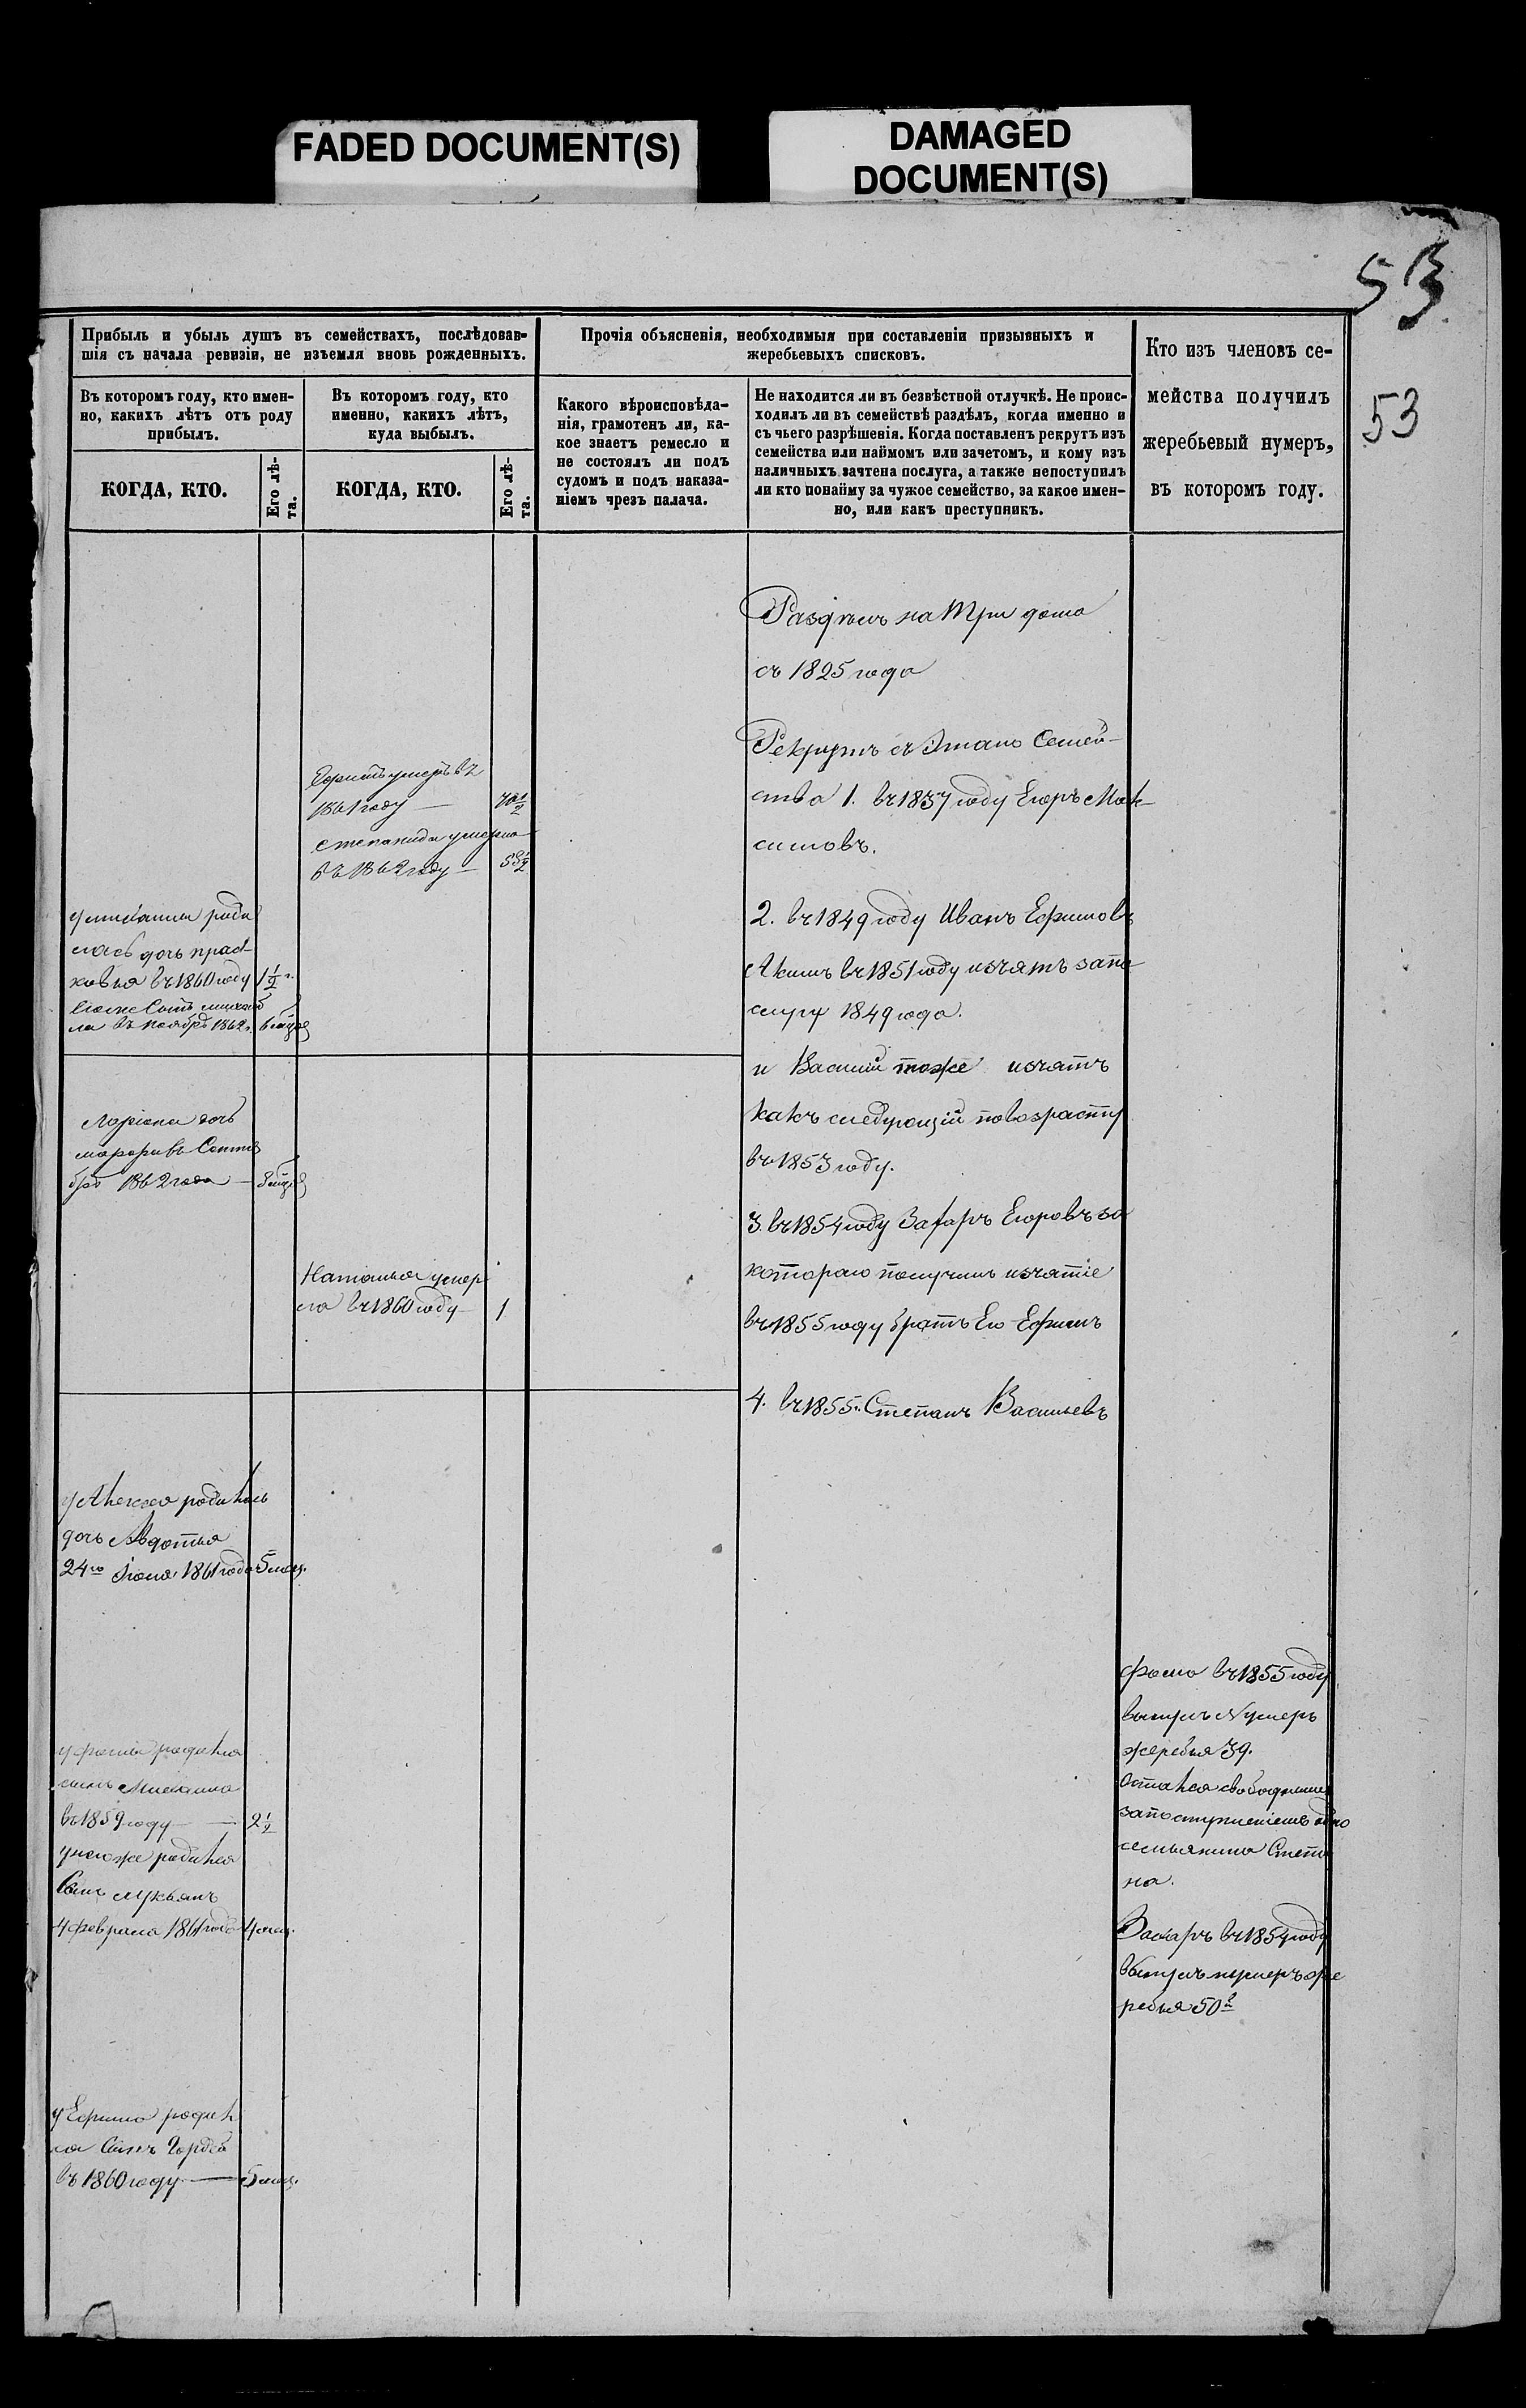 FADED DOCUMENT(S)
DAMAGED
DOCUMENT(S)
53
53
Прибыль и убыль душъ въ семействахъ, послѣдовав-
шія съ начала ревизіи, не изъемля вновь рожденныхъ.
Въ которомъ году, кто имен-
но, какихъ лѣтъ отъ роду
прибылъ.
КОГДА, КТО.
Его лѣ-
та.
Въ которомъ году, кто
именно, какихъ лѣтъ,
куда выбылъ.
КОГДА, КТО.
Его лѣ-
та.
Прочія объясненія, необходимыя при составленіи призывныхъ и
жеребьевыхъ списковъ.
Какого вѣроисповѣда-
нія, грамотенъ ли, ка-
кое знаетъ ремесло и
не состоялъ ли подъ
судомъ и подъ наказа-
ніемъ чрезъ палача.
Не находится ли въ безвѣстной отлучкѣ. Не проис-
ходилъ ли въ семействѣ раздѣлъ, когда именно и
съ чьего разрѣшенія. Когда поставленъ рекрутъ изъ
семейства или наймомъ или зачетомъ, и кому изъ
наличныхъ зачтена послуга, а также непоступилъ
ли кто понайму за чужое семейство, за какое имен-
но, или какъ преступникъ.
Кто изъ членовъ се-
мейства получилъ
жеребьевый нумеръ,
въ которомъ году.
роди
лась дочь праск
ковья въ 1860 году 1½
ла въ ноябрѣ 1862
дочь
Сентя
бря 1862 года
у Алексея родилась
дочь Авдотья
24го Іюня 1861 года 5 мес.
у фомы родился
сынъ
въ 1859 году — 2½
унегоже родился
Сынъ лукьянъ
4 февраля 1861 года 4 мес.
у Ефима родил
ся Сынъ Гордей
въ 1860 году — 5 мес.
Ефимъ умеръ въ
1861 году —
степанида умерла
въ 1862 году —
Наталья умер
ла въ 1860 году 1
Раздѣлъ на Три дома
съ 1825 года
Рекрутъ съ Этаго Семей-
ства 1. въ 1837 году Егоръ Мак-
симовъ.
2. въ 1849 году Иванъ Ефимовъ
Акимъ въ 1851 году изъятъ запо
слугу 1849 года.
и Василий тоже изъятъ
какъ следующій повозрасту
въ 1853 году.
3. въ 1854 году Захаръ Егоровъ за
котораго получилъ изъятіе
въ 1855 году братъ Его Ефимъ
4. въ 1855 г. Степанъ Васильевъ
фома въ 1855 году
вынулъ Нумеръ
жеребья 39.
Остался свободнымъ
запоступленіемъ одно
семьянина Степа
на.
Захаръ въ 1854 году
вынулъ нумеръ же
ребья 50й